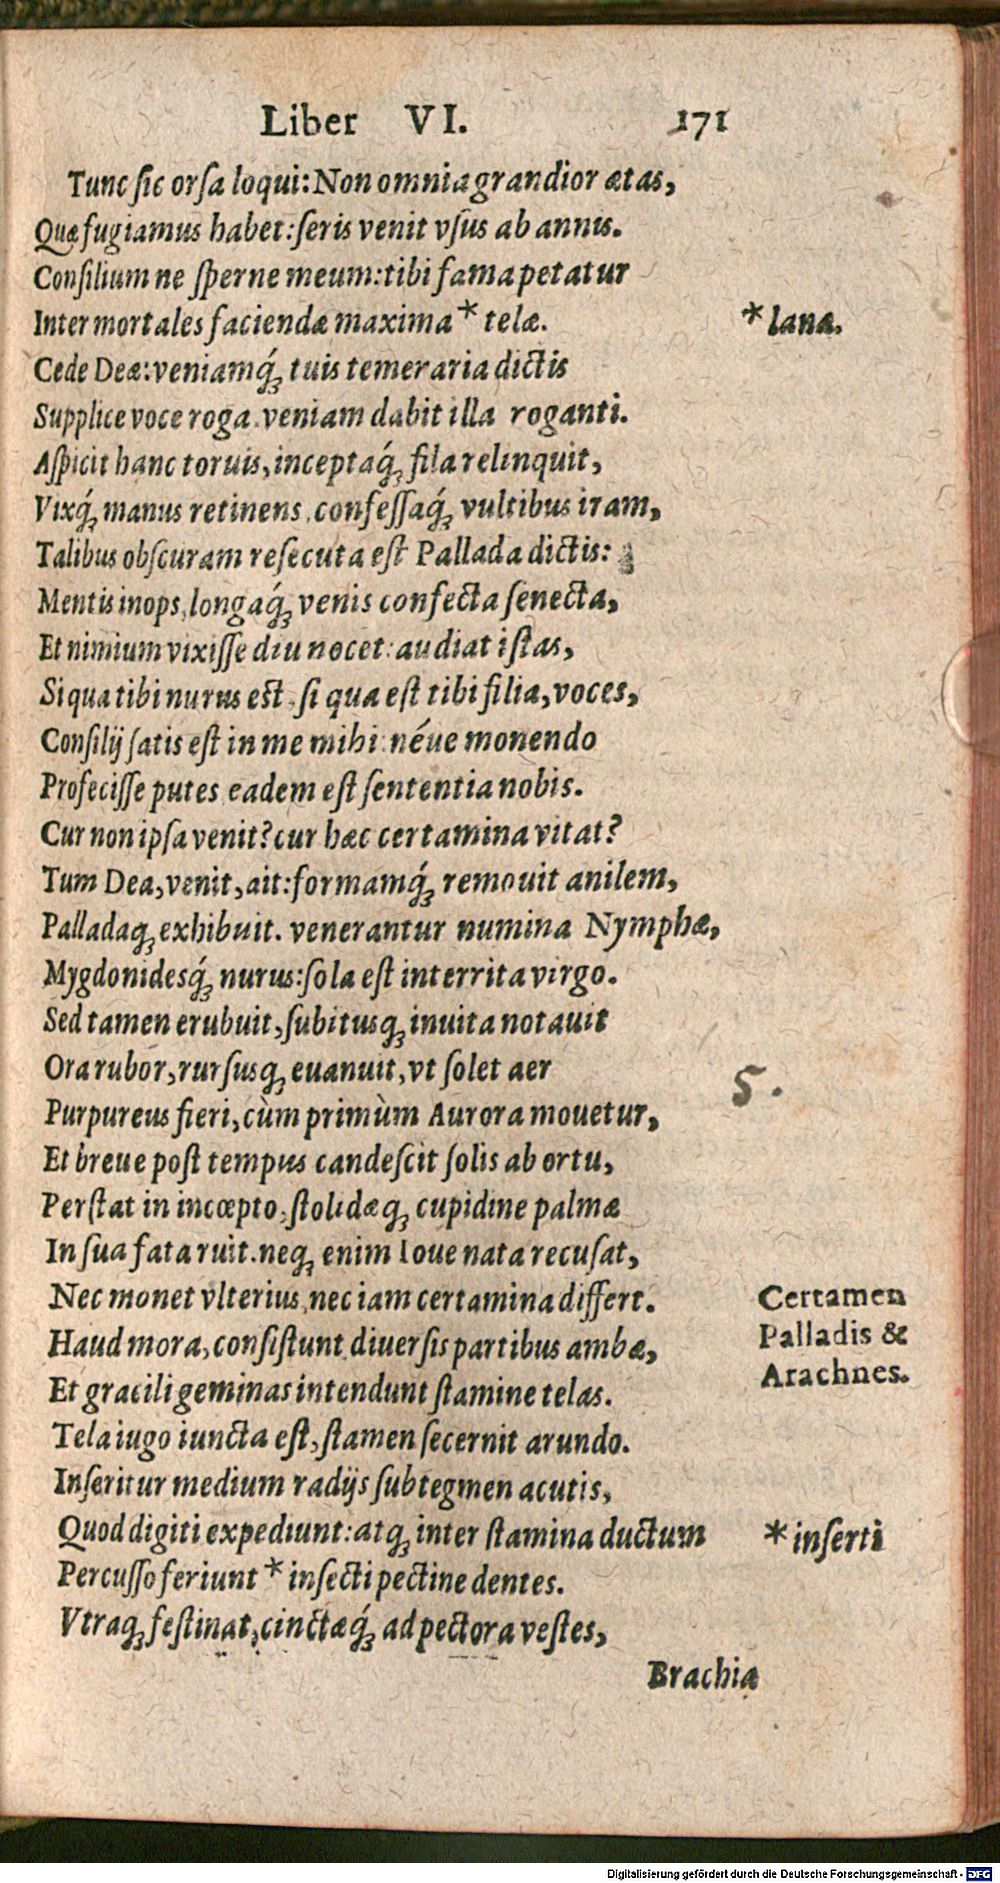 Liber VI. 171
Tunc ſic orſa loqui: Non omnia grandior ætas,
Quæ fugiamus habet: ſeris venit vſus ab annis.
Conſilium ne ſperne meum: tibi fama petatur
Inter mortales faciendæ maxima * telæ.
* lanæ.
Cede Deæ: veniamq́; tuis temeraria dictis
Supplice voce roga. veniam dabit illa roganti.
Aſpicit hanc toruis, inceptaq́; fila relinquit,
Vixq́; manus retinens, confeſſaq́; vultibus iram,
Talibus obſcuram reſecuta eſt Pallada dictis:
Mentis inops, longaq́; venis confecta ſenecta,
Et nimium vixiſſe diu nocet: audiat iſtas,
Si qua tibi nurus eſt, ſi qua eſt tibi filia, voces,
Conſilij ſatis eſt in me mihi: néue monendo
Profeciſſe putes eadem eſt ſententia nobis.
Cur non ipſa venit? cur hæc certamina vitat?
Tum Dea, venit, ait: formamq́; remouit anilem,
Palladaq; exhibuit. venerantur numina Nymphæ,
Mygdonidesq́; nurus: ſola eſt interrita virgo.
Sed tamen erubuit, ſubitusq; inuita notauit
Ora rubor, rurſusq; euanuit, vt ſolet aer
Purpureus fieri, cùm primùm Aurora mouetur,
5.
Et breue poſt tempus candeſcit ſolis ab ortu,
Perſtat in incœpto, ſtolidæq; cupidine palmæ
In ſua fata ruit. neq; enim Ioue nata recuſat,
Nec monet vlterius, nec iam certamina differt.
Certamen
Palladis &
Arachnes.
Haud mora, conſiſtunt diuerſis partibus ambæ,
Et gracili geminas intendunt ſtamine telas.
Tela iugo iuncta eſt, ſtamen ſecernit arundo.
Inſeritur medium radijs ſubtegmen acutis,
Quod digiti expediunt: atq; inter ſtamina ductum
* inſerti
Percuſſo feriunt * inſecti pectine dentes.
Vtraq; feſtinat, cinctæq́; ad pectora veſtes,
Brachia
Digitalisierung gefördert durch die Deutsche Forschungsgemeinschaft - DFG